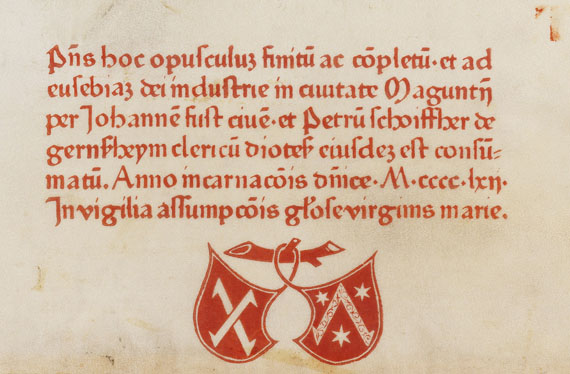 Pn̄s hoc opusculuꝫ finitū ac cōpletū·et ad
eusebiaꝫ dei industrie in ciuitate Maguntij
per Johannē fust ciuē·et Petrū schoiffher de
gernſzheym clericū diotes̄ eiusdeꝫ est consū-
matū. Anno incarnacōis dn̄ice·M·cccc·lxij·
In vigilia assumpcōis gl̄ose virginis marie.